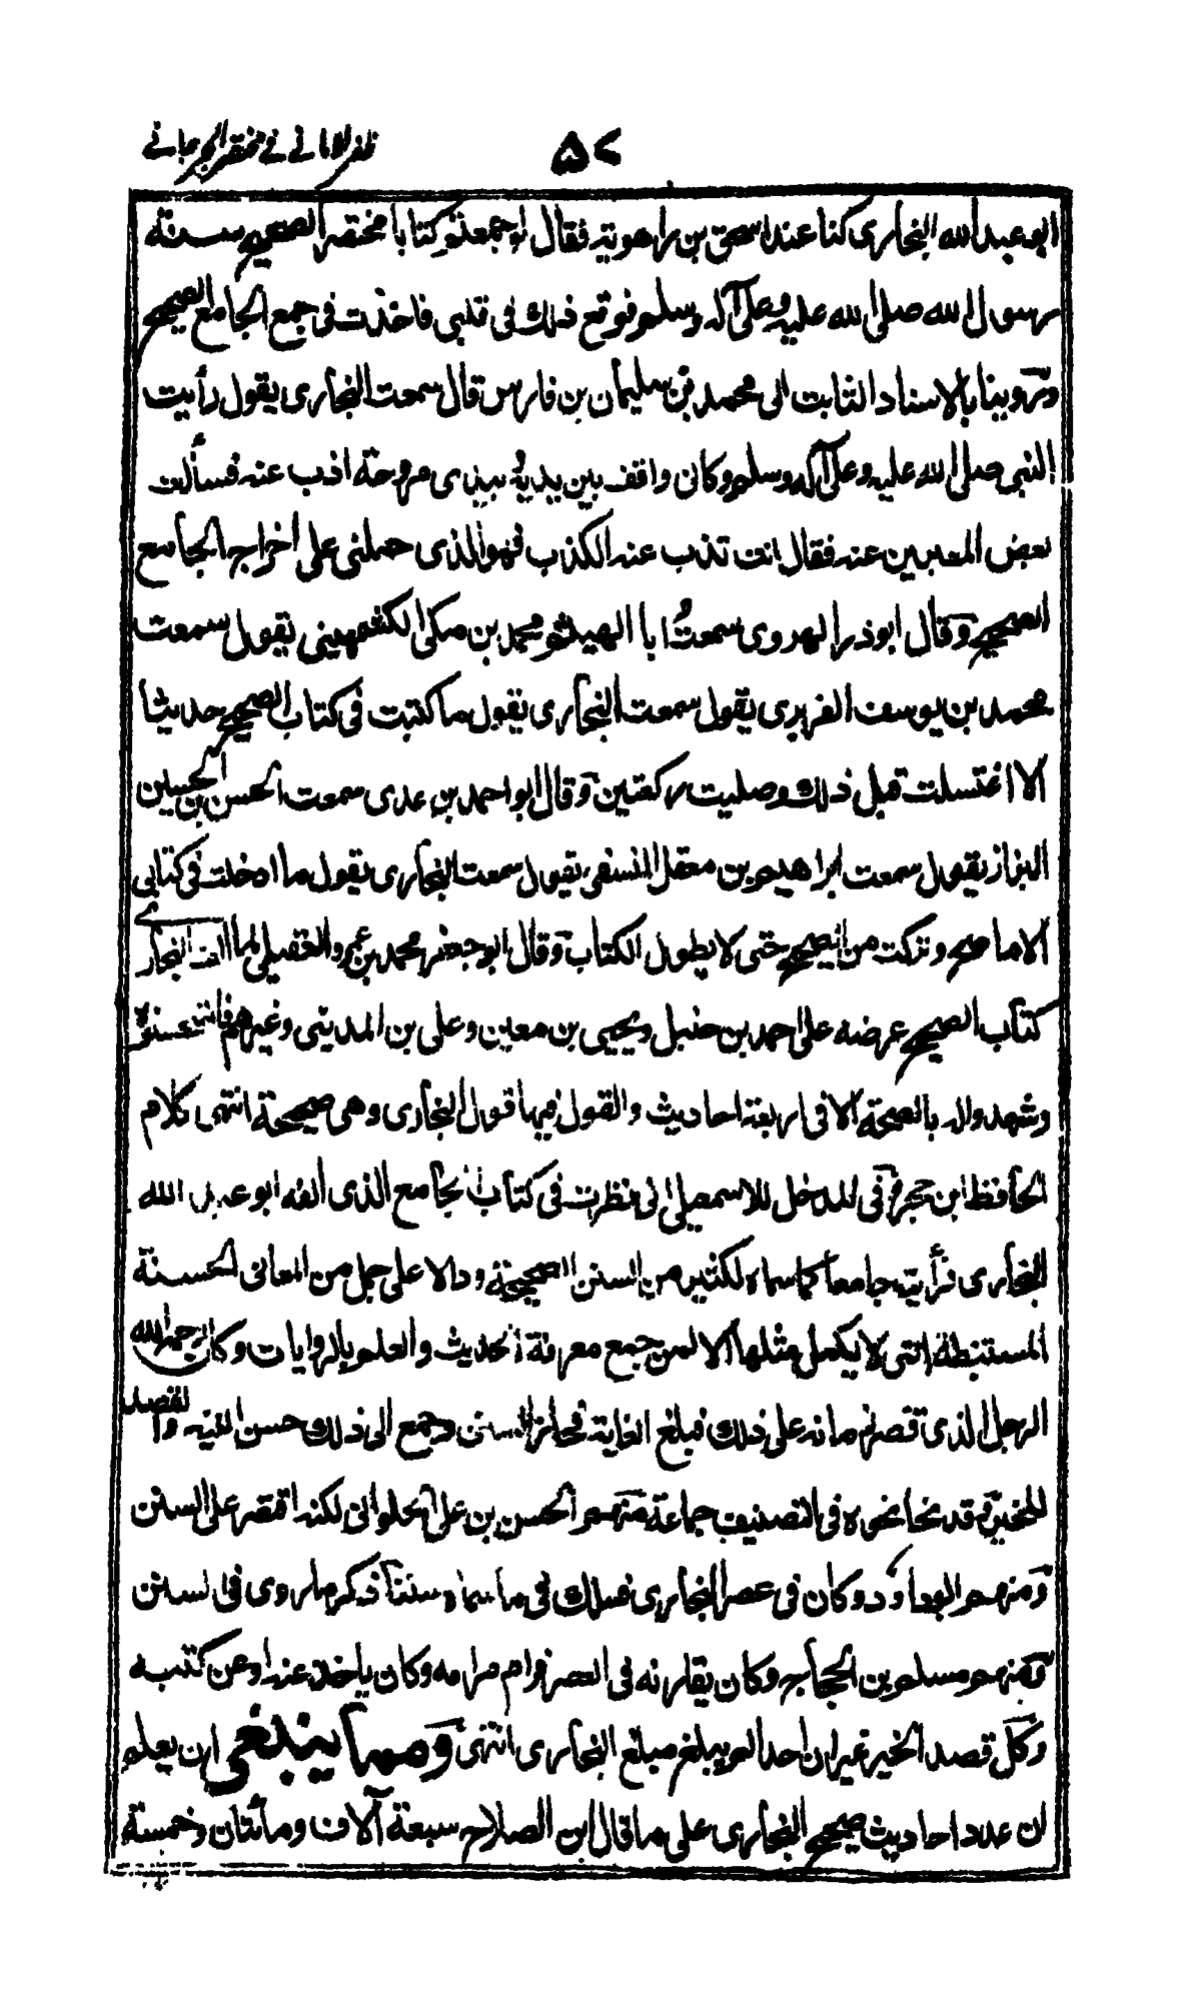 ظفر الاماني في مختصر الجرجاني
٥٢
ابو عبد الله البخارى كنا عند اسحق بن راهويه فقال لو جمعتم كتابا مختصرا لصحيح سنة
رسول الله صلى الله عليه وعلى آله وسلم فوقع ذلك فى قلبى فاخذت فى جمع الجامع الصحيح
وروينا بالاسناد الثابت الى محمد بن سليمان بن فارس قال سمعت البخارى يقول رأيت
النبى صلى الله عليه وعلى آله وسلم وكان واقف بين يديه بيدى مروحة اذب عنه فسألت
بعض المعبرين عنه فقال انت تذب عنه الكذب فهو الذى حملنى على اخراج الجامع
الصحيح وقال ابو ذر الهروى سمعتُ ابا الهيثم محمد بن مكى الكشمهينى يقول سمعت
محمد بن يوسف الفربرى يقول سمعت البخارى يقول ما كتبت فى كتاب الصحيح حديثا
الا اغتسلت قبل ذلك وصليت ركعتين وقال ابو احمد بن عدى سمعت الحسن بن الحسين
البزاز يقول سمعت ابراهيم بن معقل النسفى يقول سمعت البخارى يقول ما ادخلت فى كتابى
الا ما صح وتركت من الصحيح حتى لا يطول الكتاب وقال ابو جعفر محمد بن عمرو العقيلى لما الف البخارى
كتاب الصحيح عرضه على احمد بن حنبل ويحيى بن معين وعلى بن المدينى وغيرهم فاستحسنوه
وشهدوا له بالصحة الا فى اربعة احاديث والقول فيها قول البخارى وهى صحيحة انتهى كلام
الحافظ ابن حجر وفى المدخل للاسمعيلى انى نظرت فى كتاب الجامع الذى الفه ابو عبد الله
البخارى فرأيته جامعا كما سماه لكثير من السنن الصحيحة ودالا على جمل من المعانى الحسنة
المستنبطة التى لا يكمل مثلها الا لمن جمع معرفة الحديث والعلم بالروايات وكان رحمه الله
الرجل الذى قصر زمانه على ذلك فبلغ الغاية فحاز السبق وجمع الى ذلك حسن النيه والقصد
للخير وقد نحا نحوه فى التصنيف جماعة منهم الحسن بن على الحلوانى لكنه اقتصر على السنن
ومنهم ابو داود وكان فى عصر البخارى فسلك فى ما سماه سننا ذكر ما روى فى السنن
ومنهم مسلم بن الحجاج وكان يقاربه فى العصر فرام مرامه وكان ياخذ عنه او عن كتبه
وكل قصد الخير غير ان احدا لم يبلغ مبلغ البخارى انتهى ومما ينبغى ان يعلم
ان عدد احاديث صحيح البخارى على ما قال ابن الصلاح سبعة آلاف ومائتان وخمسة